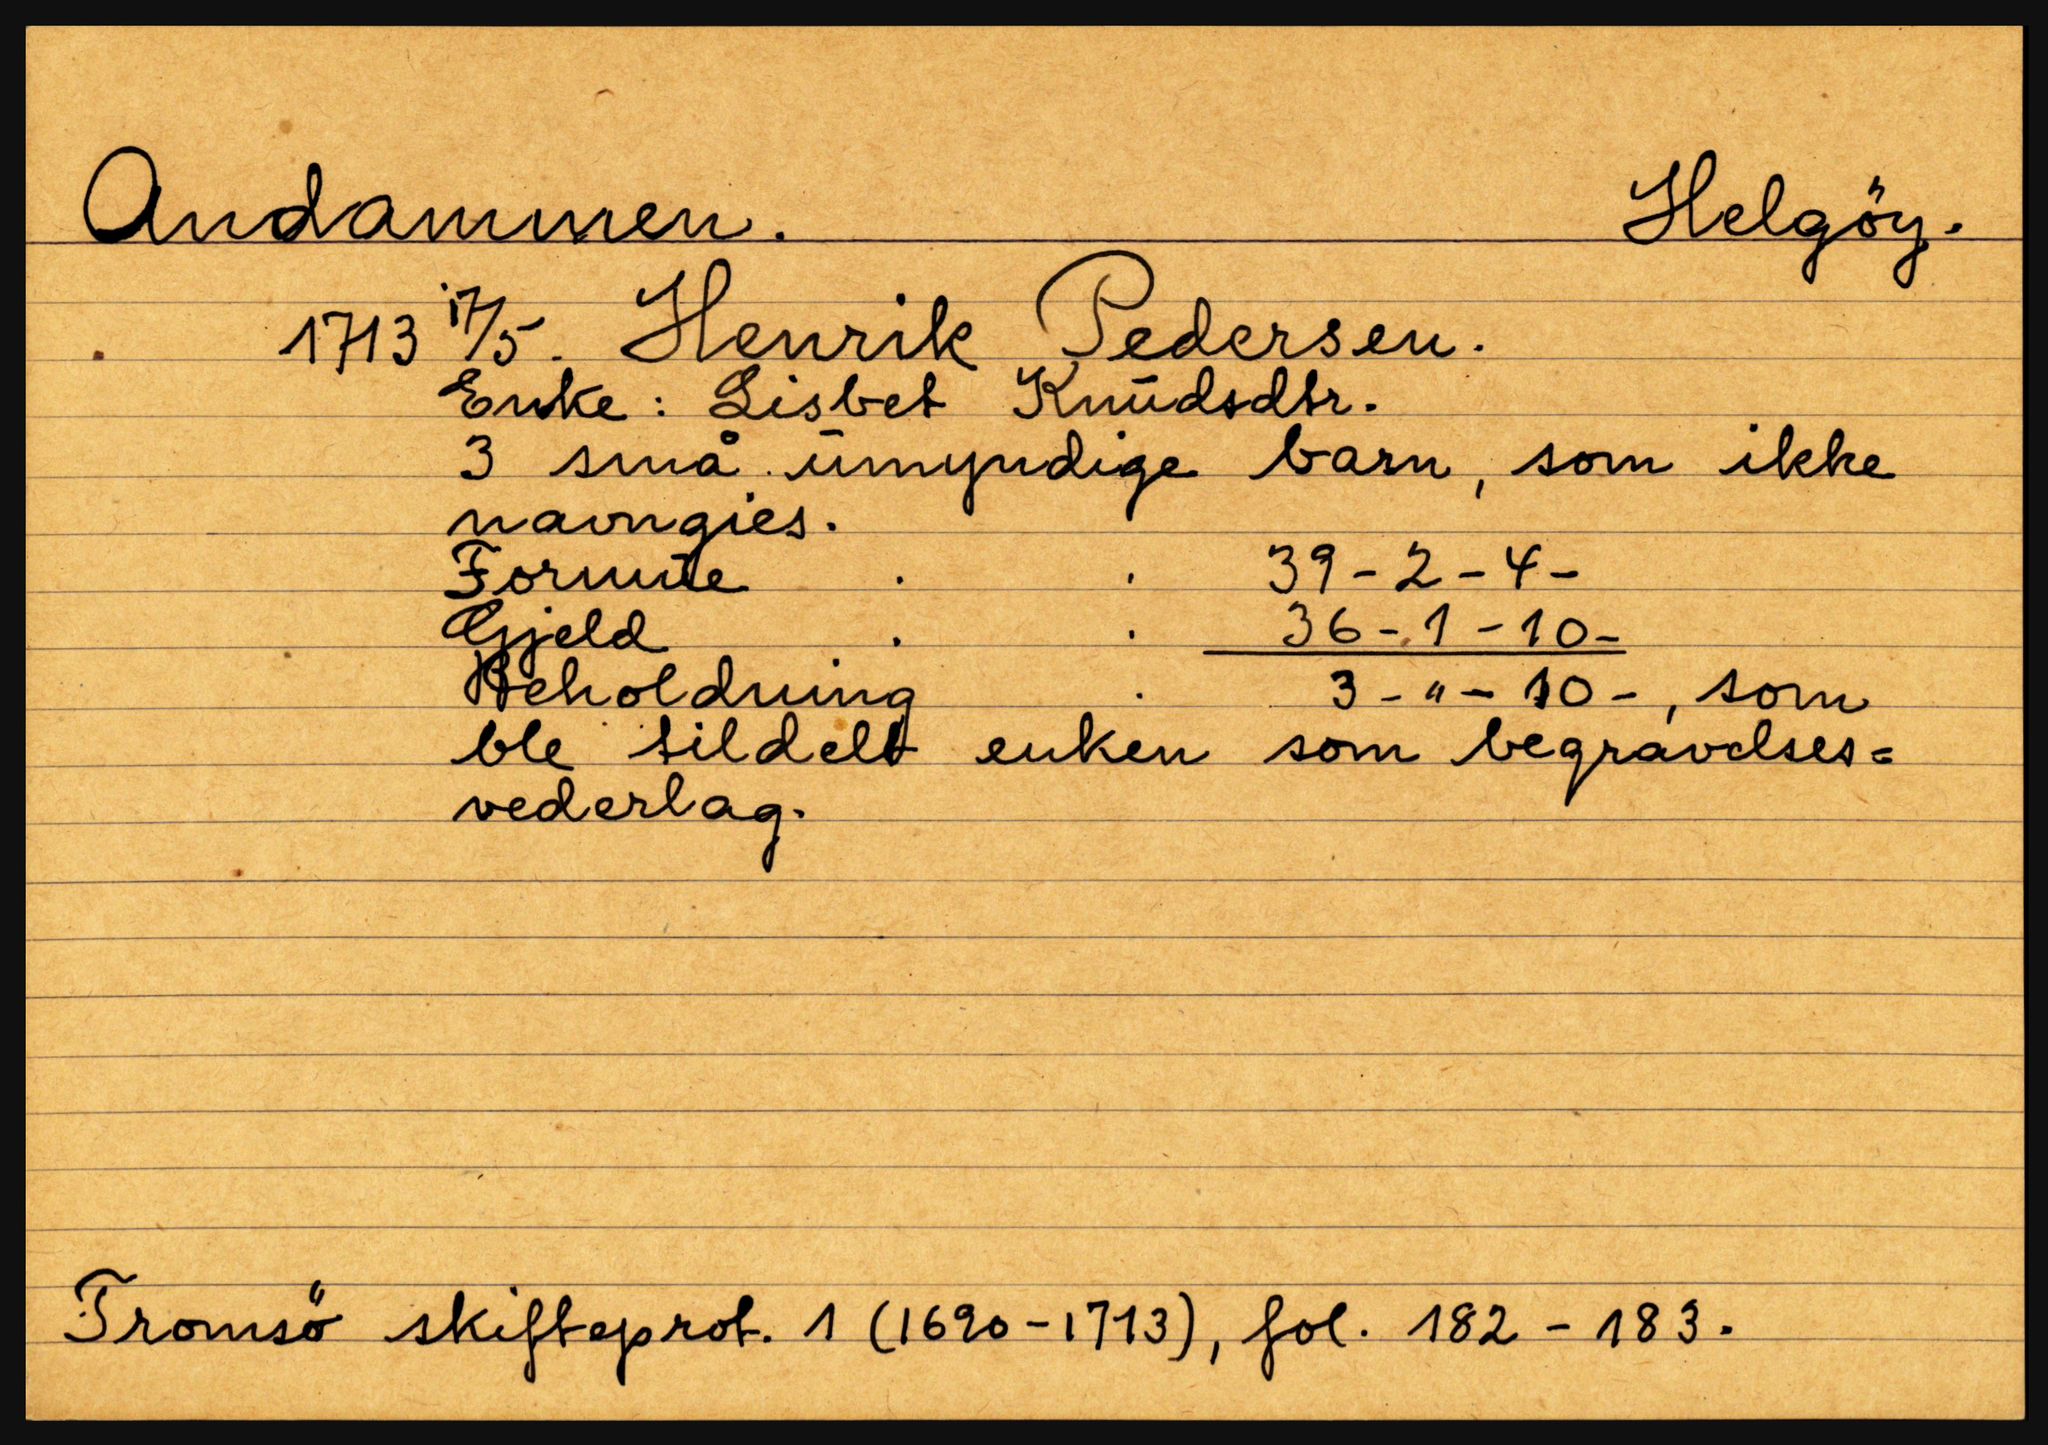 Andammen. Helgöy.
1713 17/5. Henrik Pedersen.
Enke: Lisbet Knudsdtr.
3 små umyndige barn, som ikke
navngies.
Formue . . 39-2-4-
Gjeld . . 36-1-10-
Beholdning . 3-"-10-, som
ble tildelt enken som begravelses=
vederlag.
Tromsö skifteprot. 1 (1690-1713), fol. 182-183.